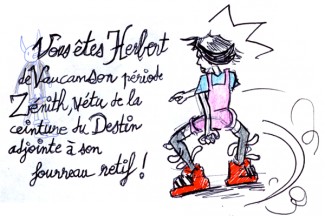 Vous êtes Herbert
de Vaucanson période
Zénith, vêtu de la
ceinture du Destin
adjointe à son
fourreau retif !